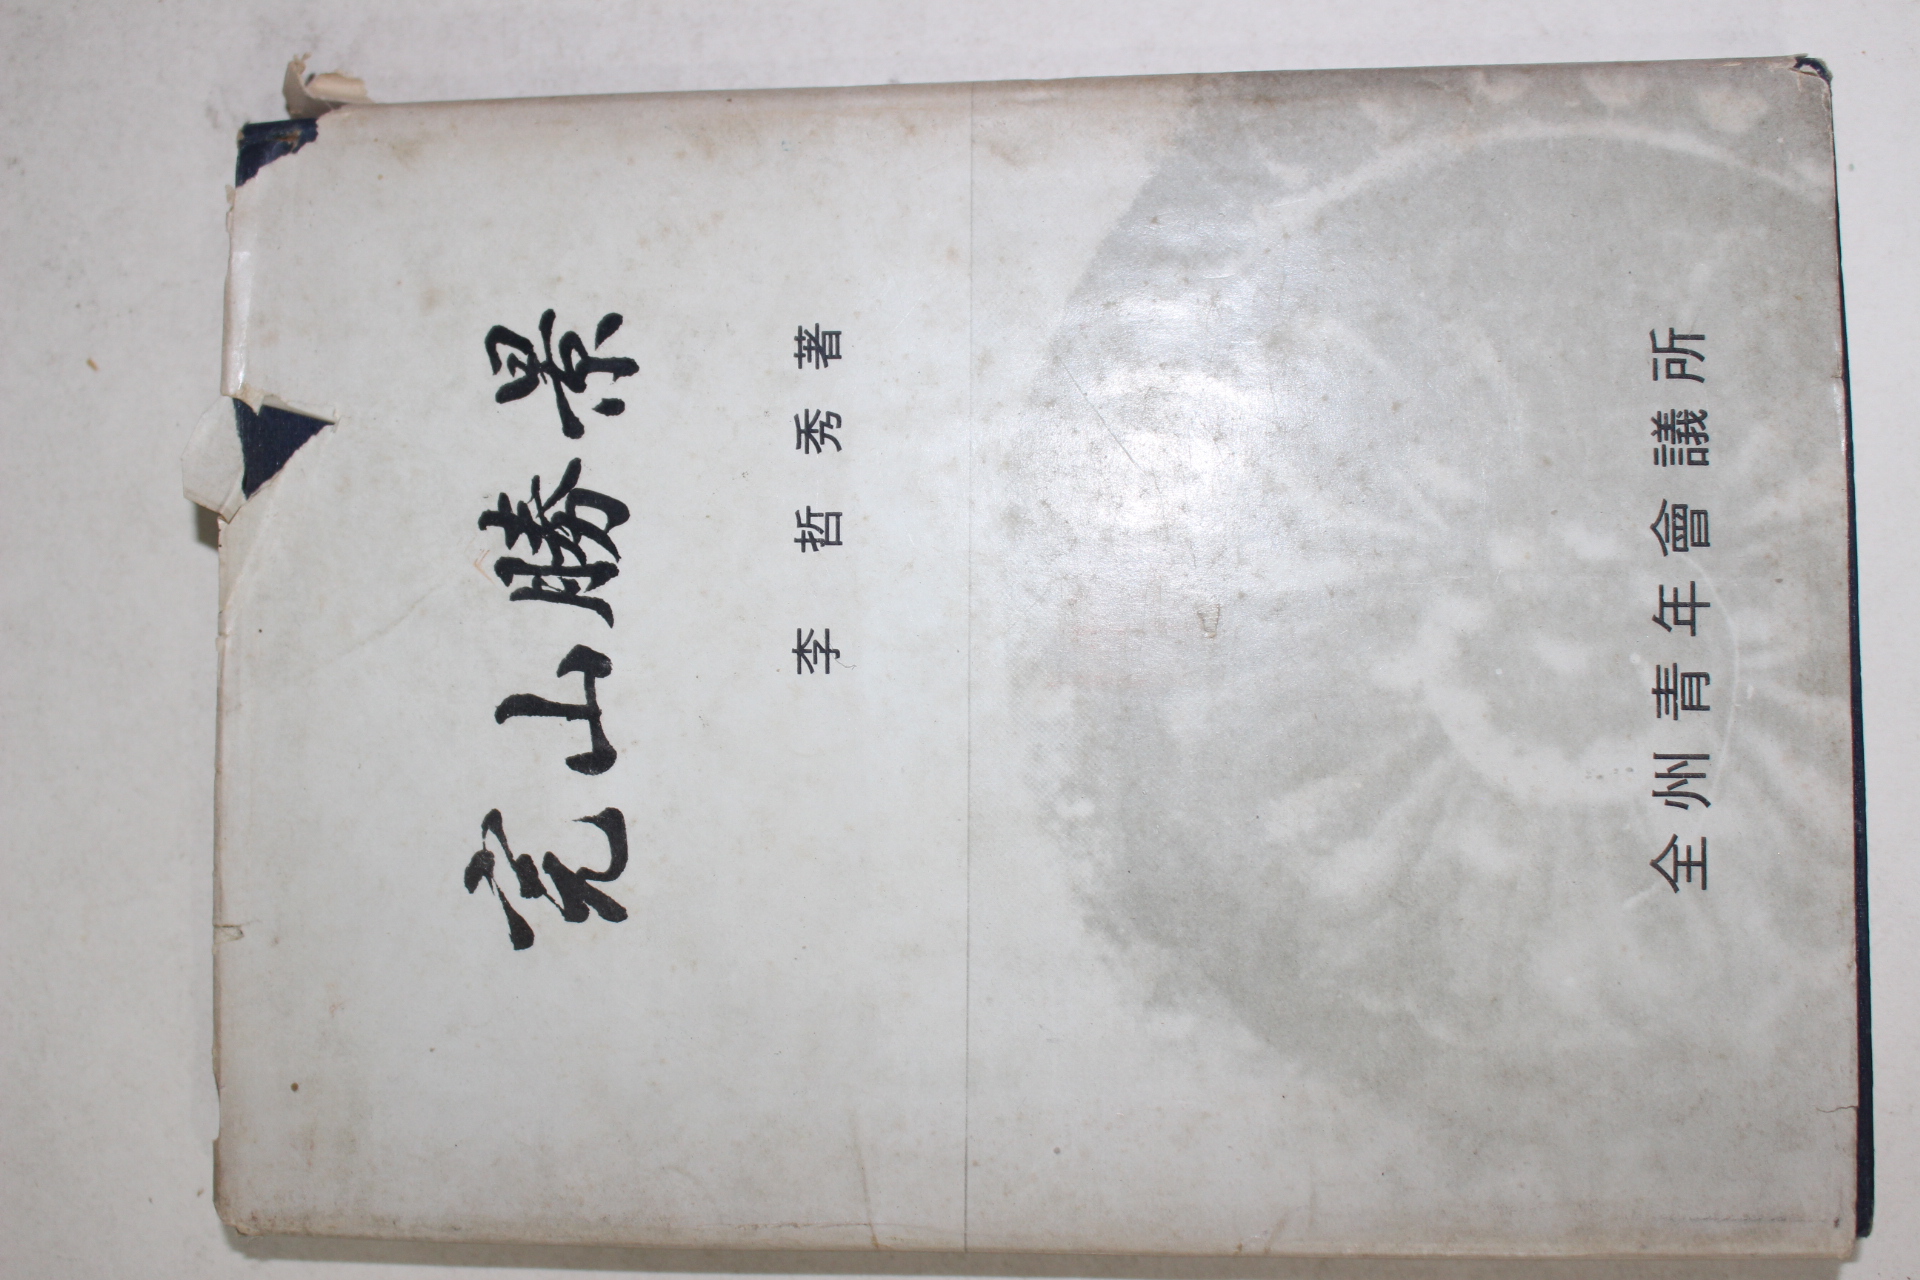 完山勝景
李哲秀著
全州青年會議所